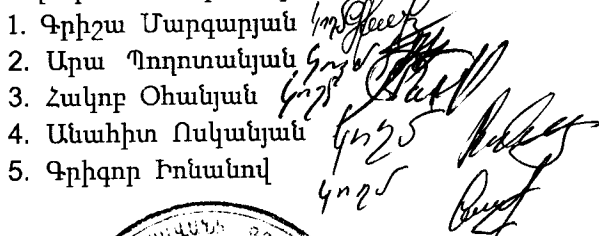 1. Գրիշա Մարգարյան կողմ
2. Արա Պողոտանյան կողմ
3. Հակոբ Օհանյան կողմ
4. Անահիտ Ոսկանյան կողմ
5. Գրիգոր Իոնանով կողմ